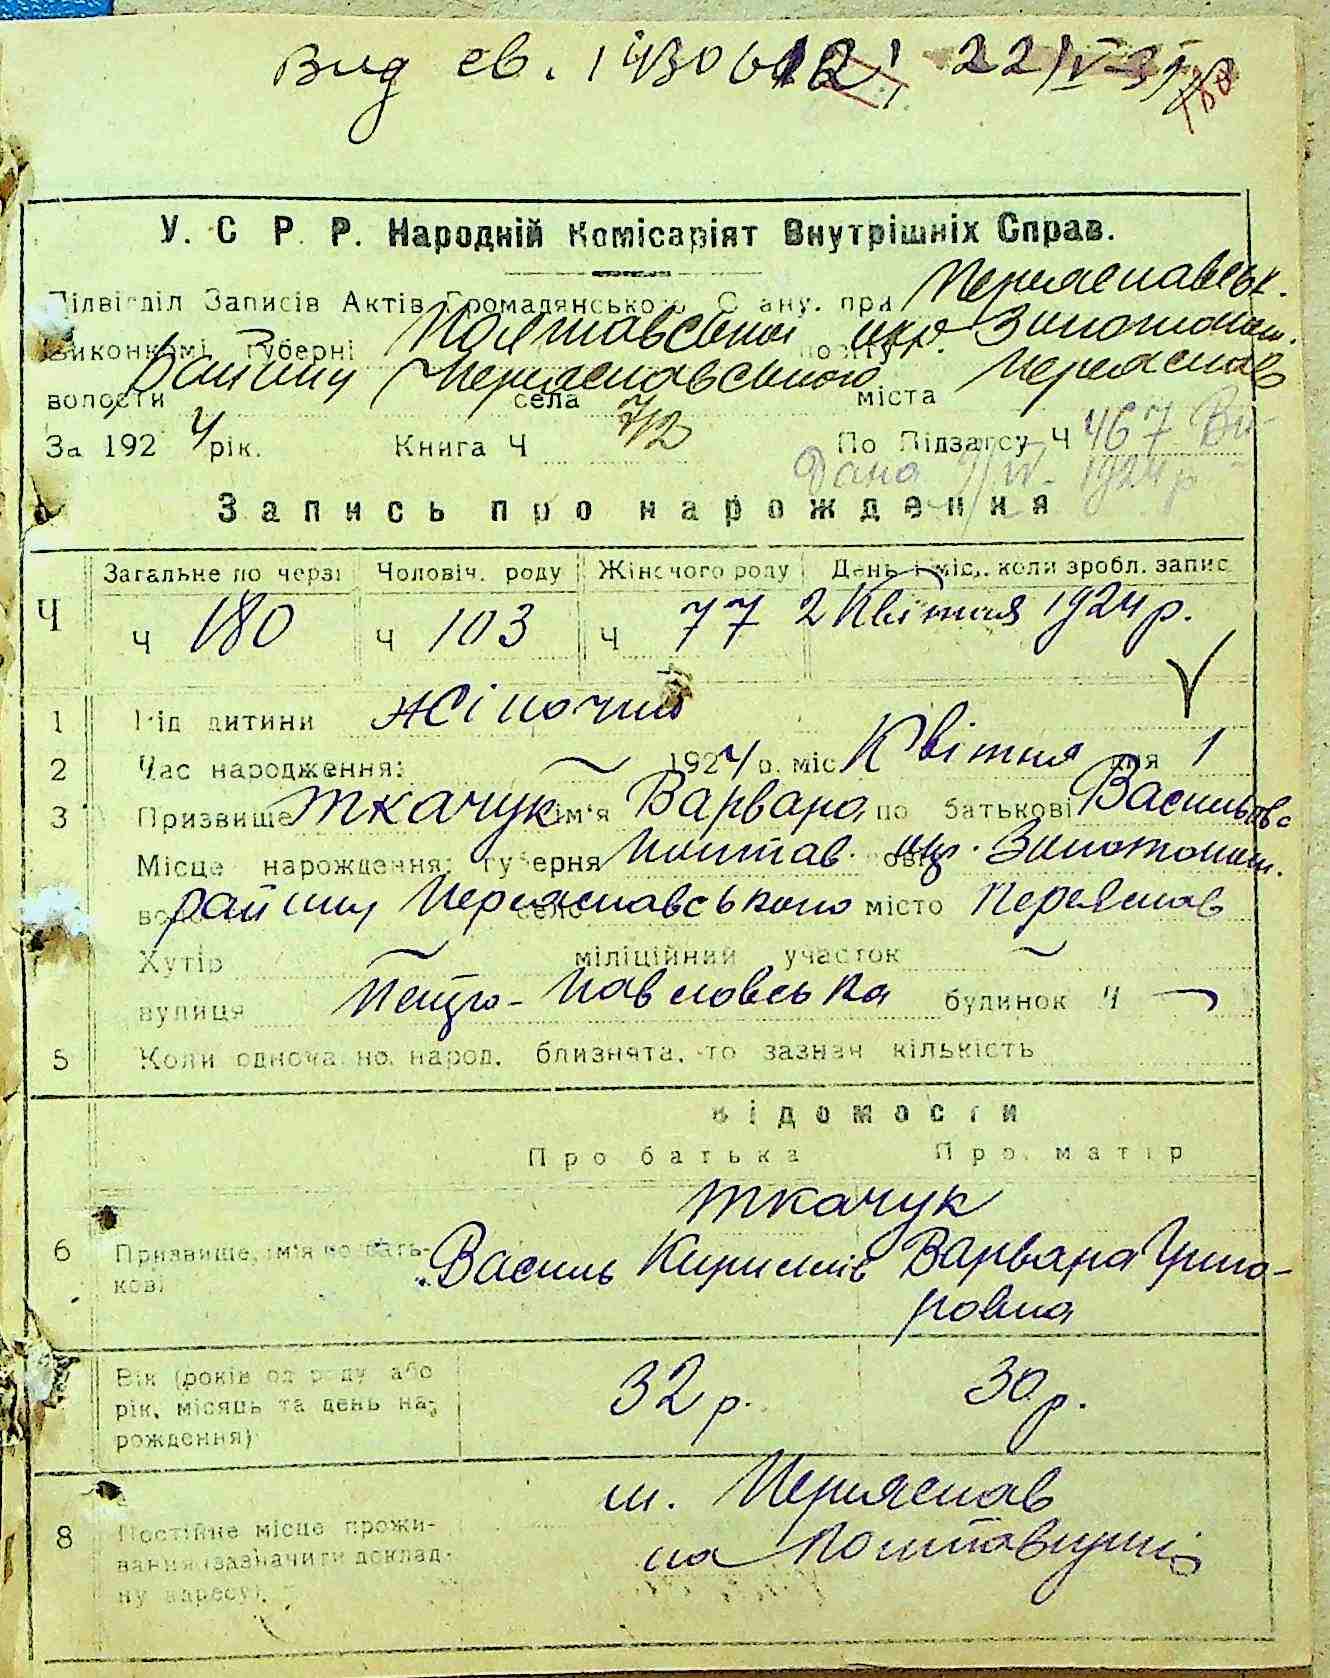 Вид св.
У. С Р. Р. Народній Комісаріят Внутрішніх Справ.
Підвідділ Записів Актів Громадянського Стану. при Переяславськ.
Виконкомі, Губерні Полтавської окр. Золотонош.
волости району Переяславського села міста Переяслав
За 1924 рік. Книга Ч По Підзапсу Ч 467 Ви-
дана 1924 р
Запись про нарождення
Загальне по черзі Чоловіч. роду Жіночого роду День і міс,. коли зробл. запис
Ч ч 180 ч 103 ч 77 2 Квітня 1924 р.
1 Рід дитини жіночий
2 Час народження: 1924 р. міс Квітня дня 1
3 Призвище Ткачук ім'я Варвара по батькові Васильовс
Місце нарождення: губерня Полтав. окр. Золотонош.
району Переяславського село місто Переяслав
Хутір міліційний участок
вулиця Петро-Павловська будинок Ч
5 Коли одночасно. народ. близнята, то зазнач кількість
Відомости
Про батька Про матір
Ткачук
6 Призвище, ім'я по бать- Василь Кирилів Варвара Григо-
кові ровна
Вік (років од роду або 32 р. 30 р.
рік, місяць та день на-
рождення)
м. Переяслав
8 Постійне місце прожи-
вання (зазначити доклад- на
ну адресу).